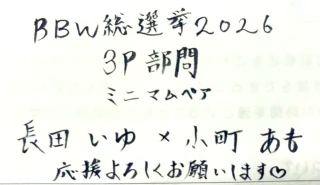 BBW総選挙2026
3P部問
ミニマムペア
長田いゆ×小町あも
応援よろしくお願いします♡